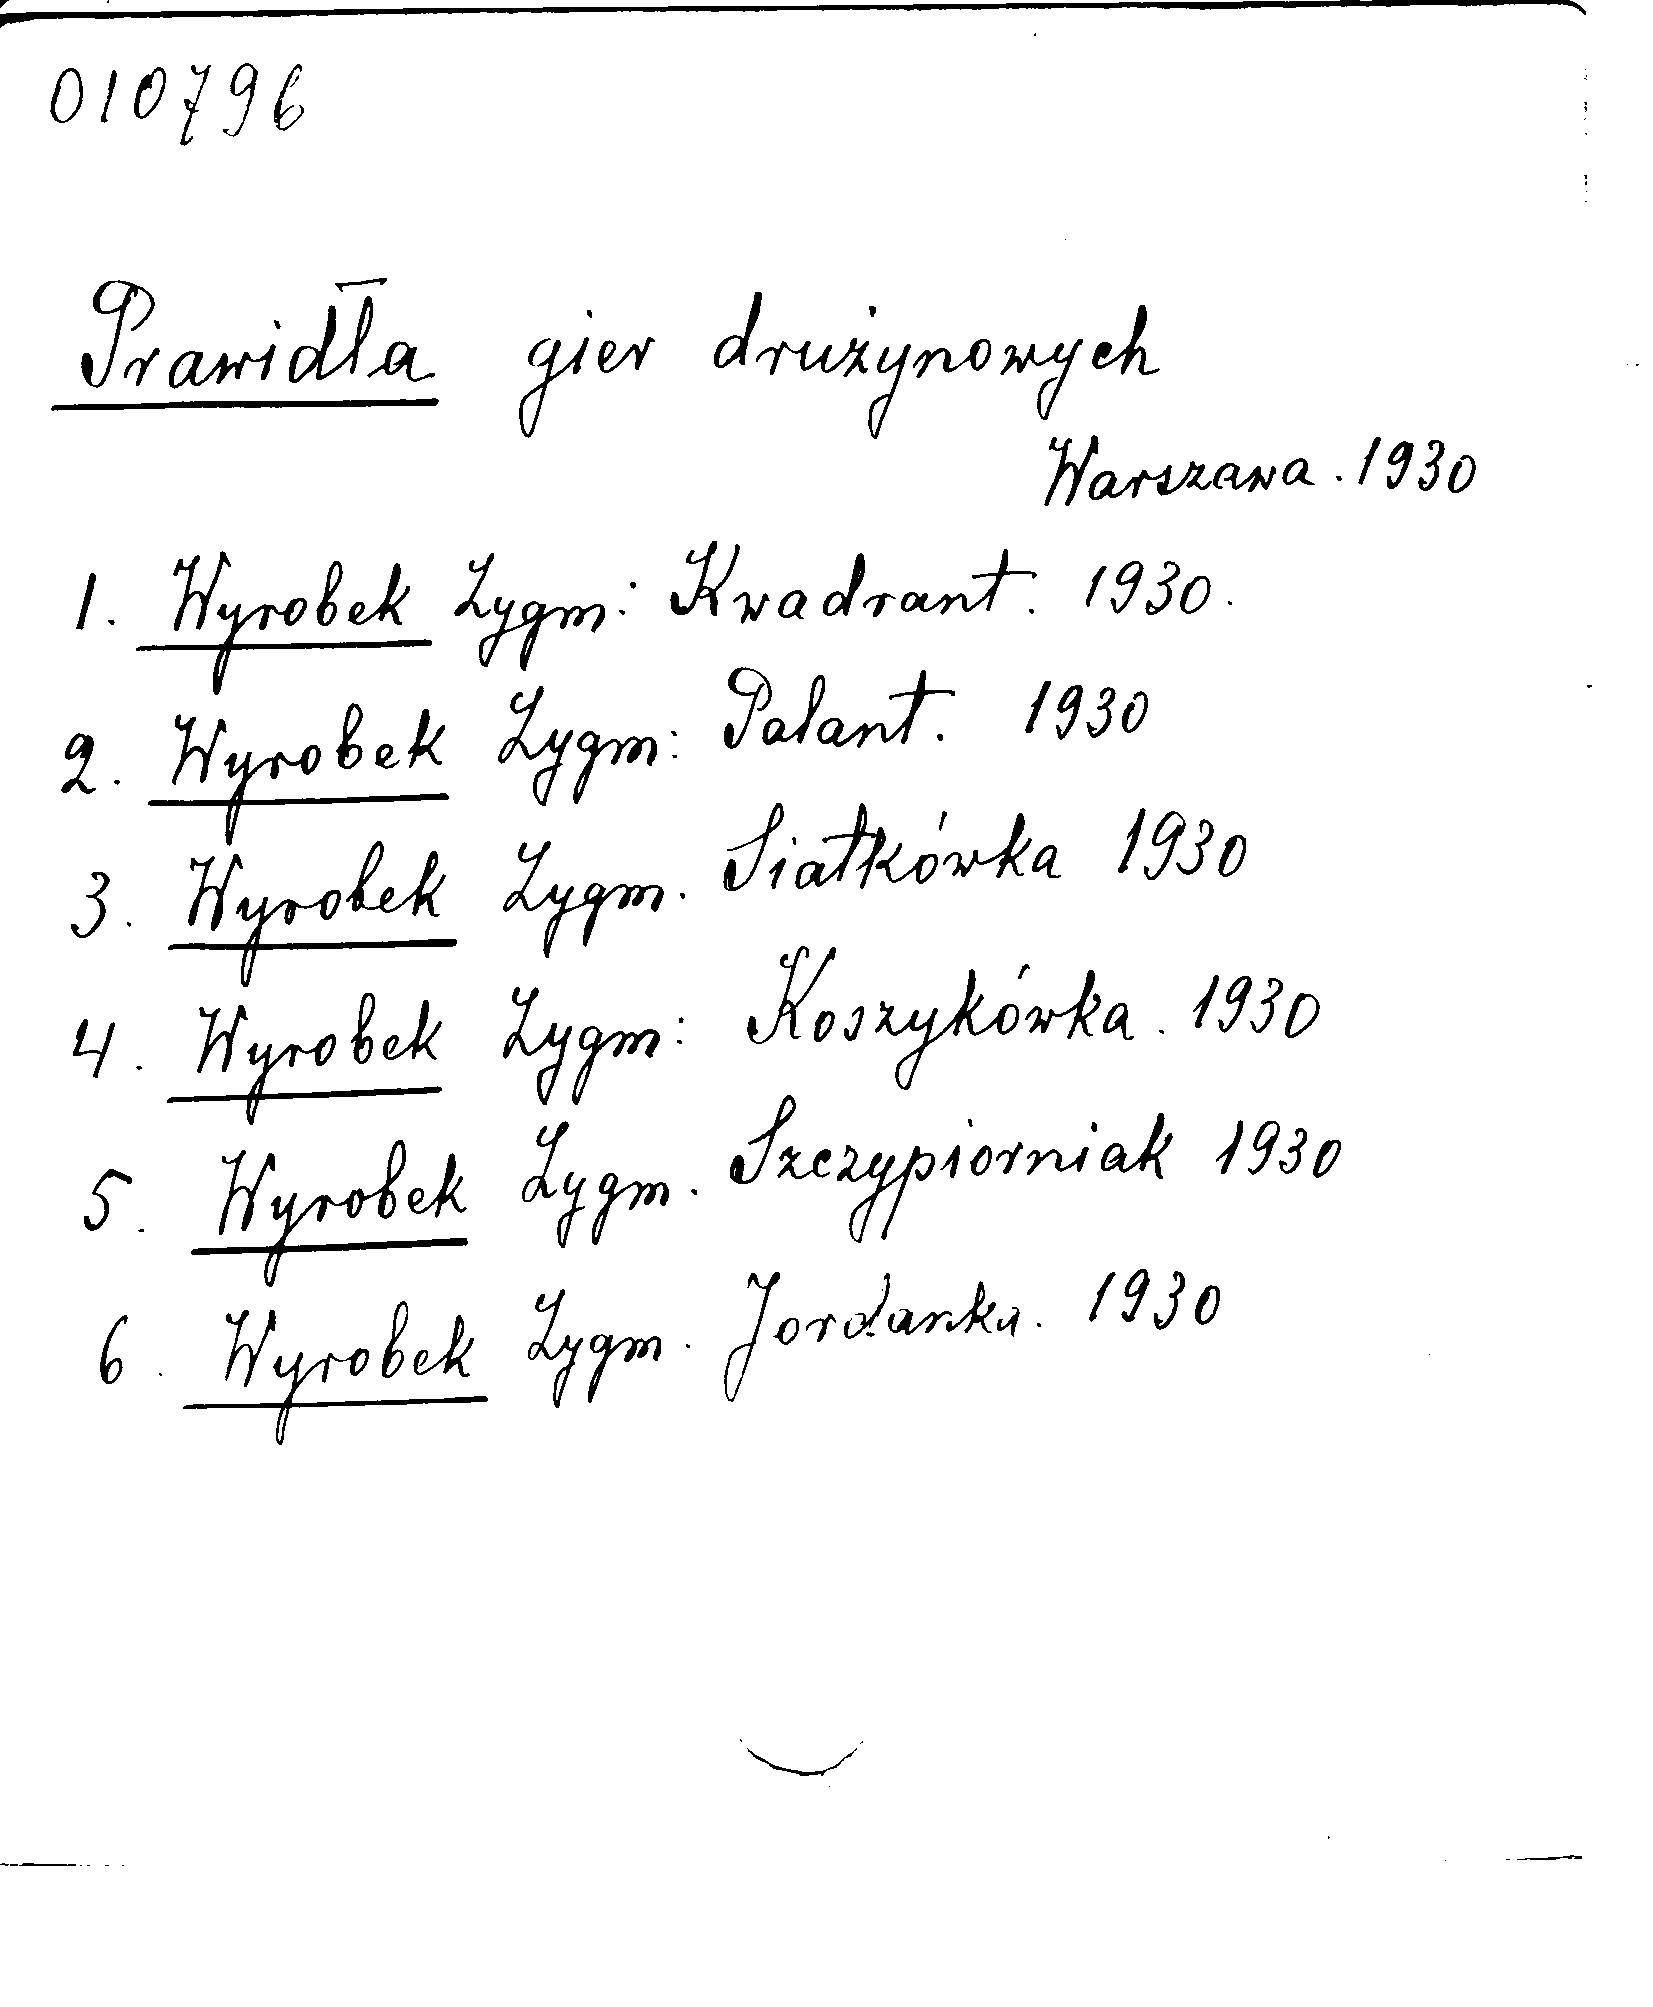 010796
Prawidła gier drużynowych
Warszawa. 1930
1. Wyrobek Zygm: Kwadrant. 1930.
2. Wyrobek Zygm: Palant. 1930
3. Wyrobek Zygm. Siatkówka 1930
4. Wyrobek Zygm: Koszykówka. 1930
5. Wyrobek Zygm. Szczypiorniak 1930
6. Wyrobek Zygm. Jordanka. 1930